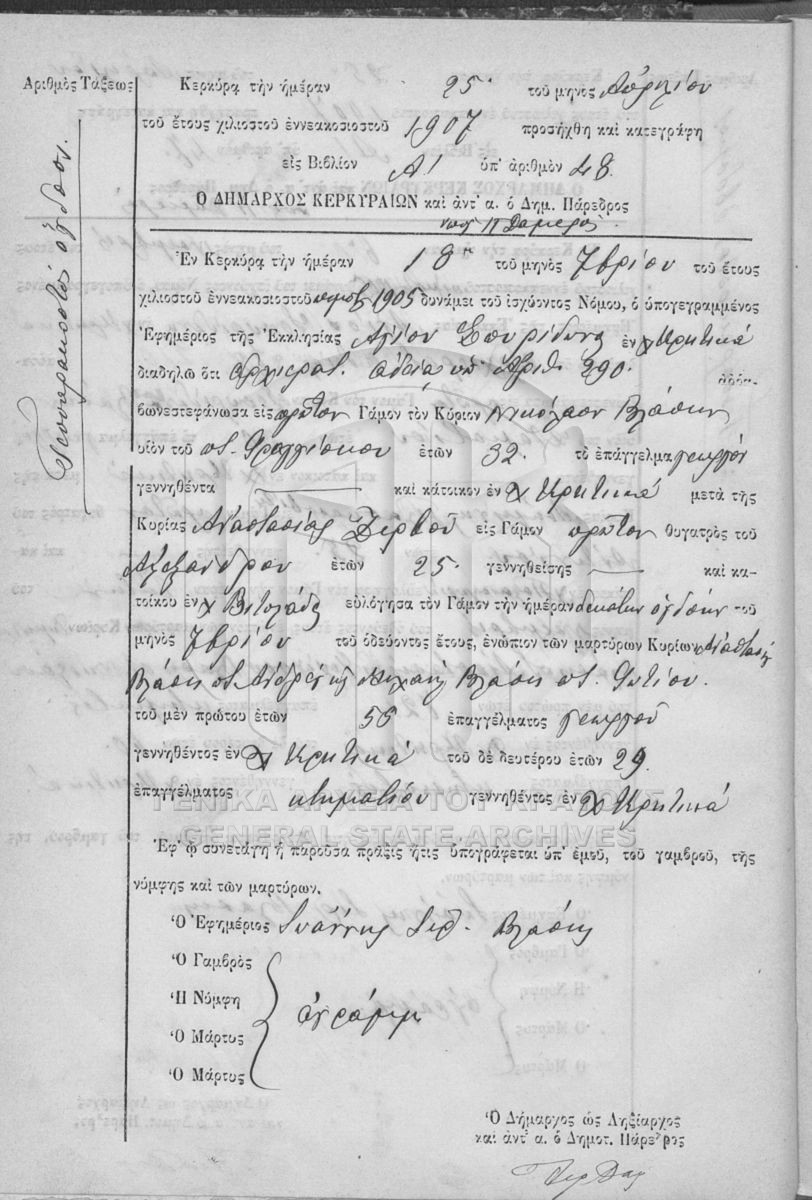 Ἀριθμὸς Τάξεως
Τεσσαρακοστὸς ὄγδοος.
Κερκύρᾳ τὴν ἡμέραν 25 τοῦ μηνὸς Ἀπριλίου
τοῦ ἔτους χιλιοστοῦ ἐννεακοσιοστοῦ 1907 προσήχθη καὶ κατεγράφη
εἰς Βιβλίον Α! ὑπ' ἀριθμὸν 48.
Ὁ ΔΗΜΑΡΧΟΣ ΚΕΡΚΥΡΑΙΩΝ καὶ ἀντ' α. ὁ Δημ. Πάρεδρος
Ἐν Κερκύρᾳ τὴν ἡμέραν 18 τοῦ μηνὸς 7βρίου τοῦ ἔτους
χιλιοστοῦ ἐννεακοσιοστοῦ 1905 δυνάμει τοῦ ἰσχύοντος Νόμου, ὁ ὑπογεγραμμένος
Ἐφημέριος τῆς Ἐκκλησίας Ἁγίου Σπυρίδωνα ἐν χ Κρητικά
διαδηλῶ ὅτι ἀρχιερατ. ἀδεία ὑπ' ἀριθ. 290.
θωνεστεφάνωσα εἰς πρῶτον Γάμον τὸν Κύριον Νικόλαον Βλάσην
υἱὸν τοῦ ποτ. Φραγγίσκου ἐτῶν 32. τὸ ἐπάγγελμα γεωργόν
γεννηθέντα — καὶ κάτοικον ἐν χ Κρητικά μετὰ τῆς
Κυρίας Ἀναστασίας Ζερβοῦ εἰς Γάμον πρῶτον θυγατρὸς τοῦ
Ἀλεξάνδρου ἐτῶν 25. γεννηθείσης — καὶ κα-
τοίκου ἐν χ Βιτολάδες εὐλόγησα τὸν Γάμον τὴν ἡμέραν δεκάτην ὀγδόην τοῦ
μηνὸς 7βρίου τοῦ ὁδεύοντος ἔτους, ἐνώπιον τῶν μαρτύρων Κυρίων Ἀναστάση
Βλάση ποτ. Ἀνδρ. κ Μιχαήλ Βλάση ποτ. Φωτίου.
τοῦ μὲν πρώτου ἐτῶν 56 ἐπαγγέλματος γεωργοῦ
γεννηθέντος ἐν χ Κρητικά τοῦ δὲ δευτέρου ἐτῶν 29
ἐπαγγέλματος κτηματίου γεννηθέντος ἐν χ Κρητικά
ΓΕΝΙΚΑ ΑΡΧΕΙΑ ΤΟΥ ΚΡΑΤΟΥΣ
GENERAL STATE ARCHIVES
Ἐφ' ᾧ συνετάγη ἡ παροῦσα πρᾶξις ἥτις ὑπογράφεται ὑπ' ἐμοῦ, τοῦ γαμβροῦ, τῆς
νύμφης καὶ τῶν μαρτύρων.
Ὁ Ἐφημέριος Ἰωάννης Βλάσης
Ὁ Γαμβρὸς
Ἡ Νύμφη ἀγράμμ
Ὁ Μάρτυς
Ὁ Μάρτυς
Ὁ Δήμαρχος ὡς Ληξίαρχος
καὶ ἀντ' α. ὁ Δημοτ. Πάρεδρος